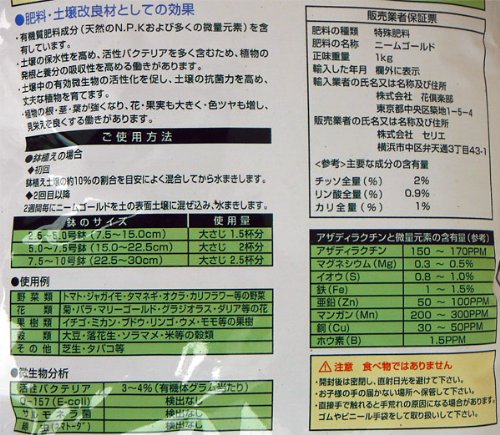 ●肥料・土壌改良材としての効果
・有機質肥料成分(天然のN.P.Kおよび多くの微量元素)を含
有しています。
・土壌の保水性を高め、活性バクテリアを多く含むため、植物の
発根と養分の吸収性を高める働きがあります。
・土壌中の有効微生物の活性化を促し、土壌の抗菌力を高め、
丈夫な植物を育てます。
・植物の根・茎・葉が強くなり、花・果実も大きく・色ツヤも増し、
見栄えを良くする働きがあります。
ご使用方法
●鉢植えの場合
◆初回
鉢植え土壌の約10%の割合を目安によく混合してから水まきします。
◆2回目以降
2週間毎にニームゴールドを土の表面土壌に混ぜ込み、水まきします。
鉢のサイズ 使用量
2.5~5.0号鉢(7.5~15.0cm) 大さじ1.5杯分
5.0~7.5号鉢(15.0~22.5cm) 大さじ 2杯分
7.5~10号鉢(22.5~30cm) 大さじ2.5杯分
●使用例
野菜類 トマト・ジャガイモ・タマネギ・オクラ・カリフラワー等の野菜
花類 菊・バラ・マリーゴールド・グラジオラス・ダリア等の花
果樹類 イチゴ・ミカン・ブドウ・リンゴ・ウメ・モモ等の果樹
穀類 大豆・落花生・ソラマメ・米等の穀類
その他 芝生・タバコ等
●微生物分析
活性バクテリア 3~4%(有機体グラム当たり)
O-157(E-coli) 検出なし
サルモネラ菌 検出なし
線虫(ネマトーダ) 検出なし
販売業者保証票
肥料の種類 特殊肥料
肥料の名称 ニームゴールド
正味重量 1kg
輸入した年月 欄外に表示
輸入業者の氏名又は名称及び住所
株式会社 花俱楽部
東京都中央区築地1-5-4
販売業者の氏名又は名称及び住所
株式会社 セリエ
横浜市中区弁天通3丁目43-1
<参考>主要な成分の含有量
チッソ全量(%) 2%
リン酸全量(%) 0.9%
カリ全量(%) 1%
アザディラクチンと微量元素の含有量(参考)
アザディラクチン 150~170PPM
マグネシウム(Mg) 0.3~0.5%
イオウ(S) 0.8~1.0%
鉄(Fe) 1~1.5%
亜鉛(Zn) 50~100PPM
マンガン(Mn) 200~300PPM
銅(Cu) 30~50PPM
ホウ素(B) 1.5PPM
⚠注意 食べ物ではありません
・開封後は密閉し、直射日光を避けて下さい。
・お子様の手の届かない場所へ保管して下さい。
・直接手で触れると手荒れの原因になる場合があります。
ゴムやビニール手袋をして取り扱いして下さい。